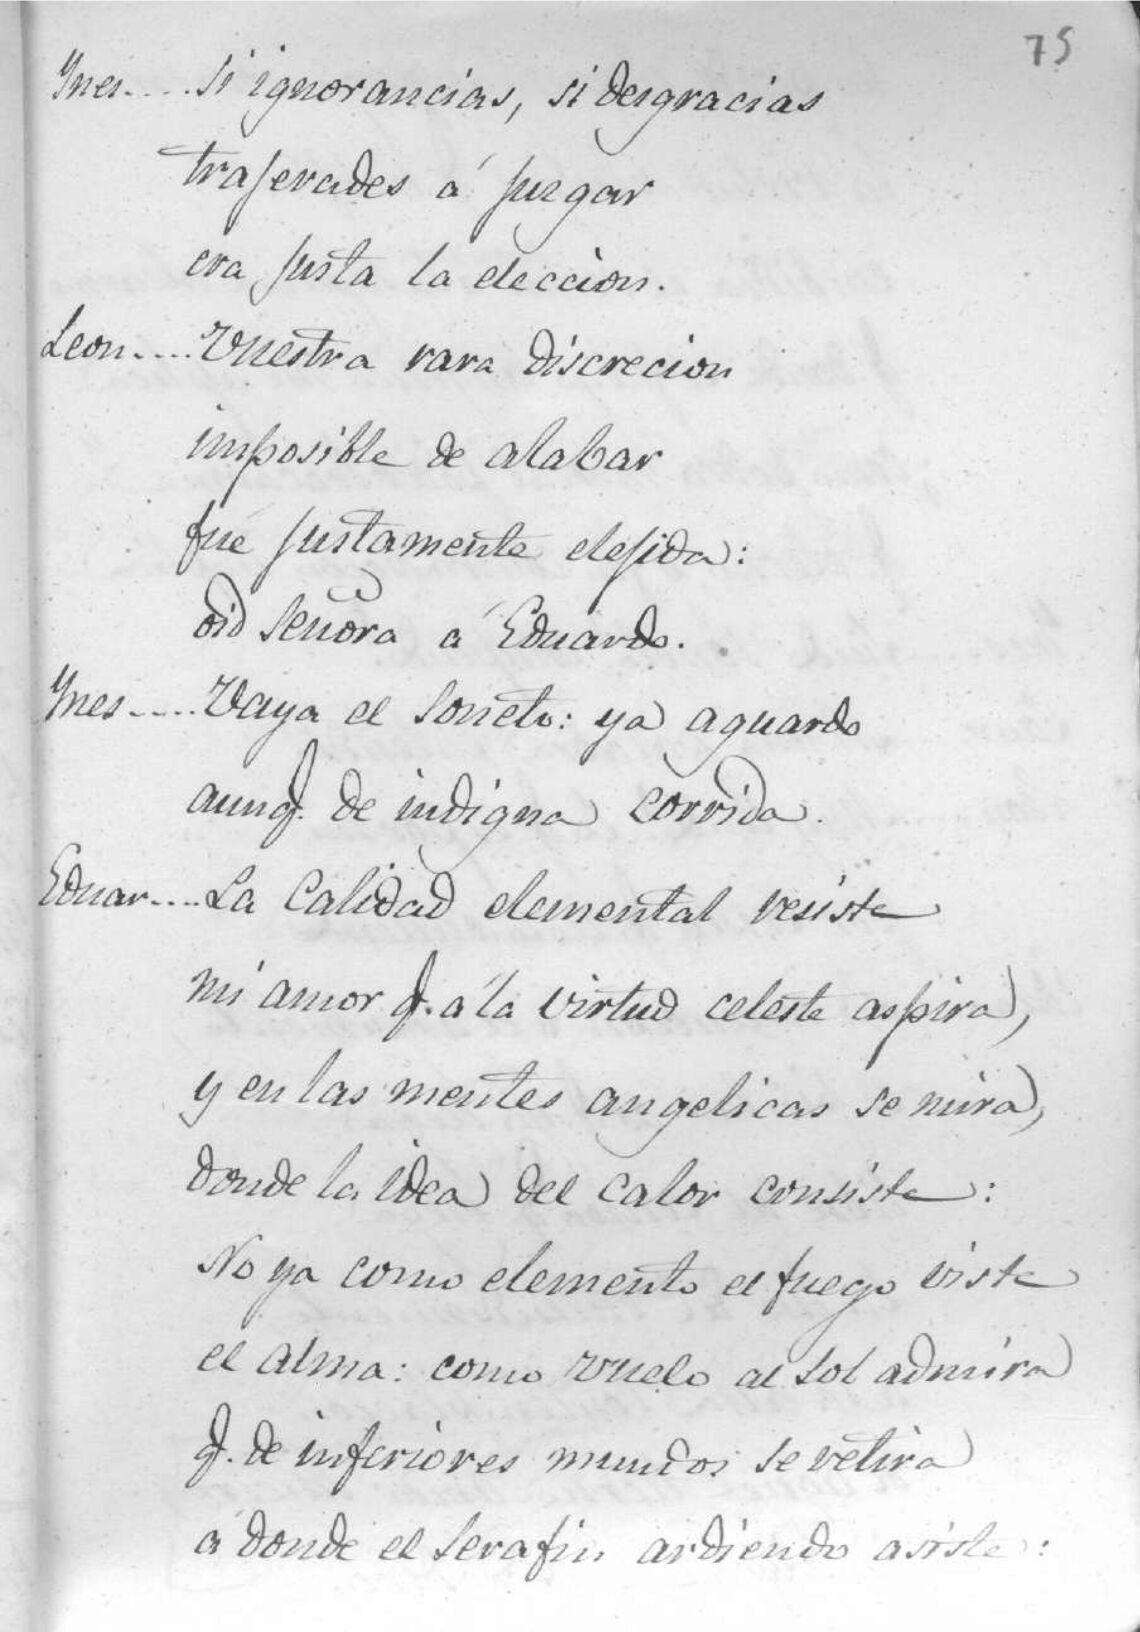 75
Ynes.... Si ignorancias, si desgracias
trajerades á juzgar
era justa la eleccion.
Leon.... Vuestra rara discrecion
imposible de alabar
fué justamente elejida:
oid Señora á Eduardo.
Ynes.... Vaya el Soneto: ya aguardo
aunq. de indigna corrida.
Eduar.... La Calidad elemental resiste
mi amor q. á la virtud celeste aspira,
y en las mentes angelicas se mira,
donde la idea del calor consiste:
No ya como elemento el fuego viste
el alma: como vuelo al Sol admira
q. de inferiores mundos se retira
a donde el Serafin ardiendo asiste: